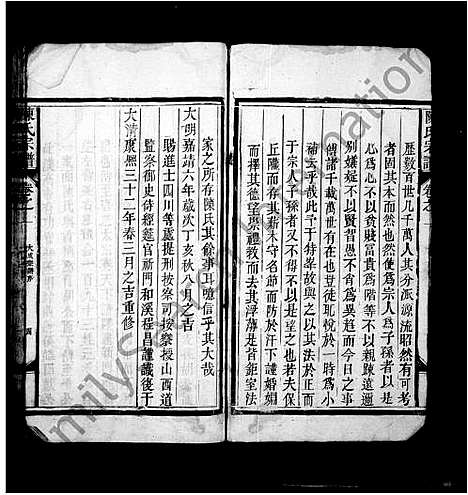 陳氏宗譜 卷之一
歷數百世凡千萬人其分派源流昭然有可考
者因其本而然也然使為宗人為子孫者以是
心為心不以貧賤富貴為階等不以親疎遠邇
別嫌疑不以賢智愚不肖為異趋而今日之事
傳諸千載萬世有在也豈徒現悅於一時為小
補云乎哉此予于特筆故與之以其法於正而
于宗人子孫者又不得不以是望之也若夫保
丘隴而存其薪木守名節而防於汗下謹婚姻
而擇其德望崇禮教而去其浮薄是昔鉅室法
家之所存陳氏其餘事耳噫信乎其大哉
大明嘉靖六年歲次丁亥秋八月之吉
賜進士四川等處提刑按察司按察授山西道
監察御史侍經筵官祈門和溪程昌謹識後于
大清康熙三十二年春三月之吉重修
陳氏宗譜 卷之一